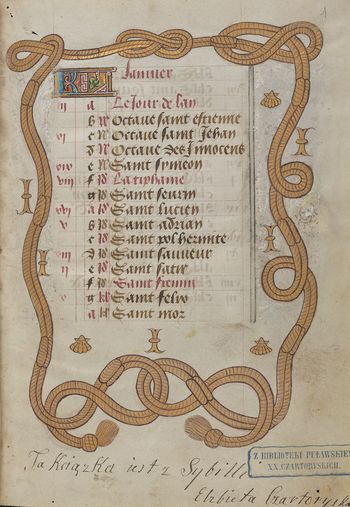 1
KL Januier
iii a Le Jour de lan
b Octaue saint estienne
xi c Octaue saint Jehan
d Octaue des Innocens
xix e Saint symeon
viii f La tiphaine
g Saint seurin
xvi a Saint lucien
v b Saint adrian
c Saint pol hermite
xiii d Saint sauueur
ii e Saint satir
f Saint fremin
g Saint felix
a Saint mor
Ta Książka iest z Sybilli
Elżbieta Czartoryska
Z BIBLIOTEKI PUŁAWSKIEJ
XX. CZARTORYSKICH.